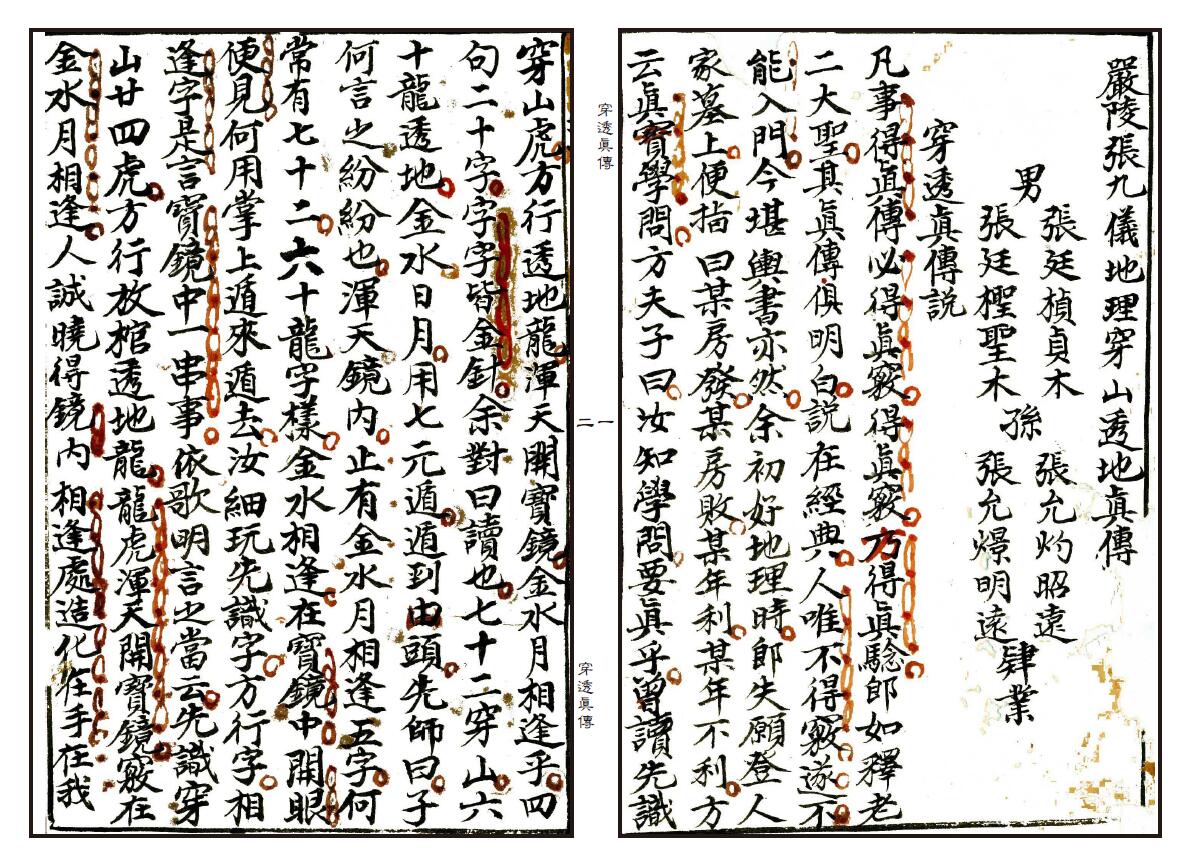 嚴陵張九儀地理穿山透地眞傳
男
張廷楨貞木
張廷檉聖木
孫
張允灼昭遠
張允燝明遠
肄業
穿透眞傳說
凡事得眞傳必得眞竅得眞竅乃得眞驗郎如釋老
二大聖其眞傳俱明白説在經典人唯不得竅遂不
能入門今堪輿書亦然余初好地理時郎失願登人
家墓上便指曰某房發某房敗某年利某年不利方
云眞實學問方夫子曰汝知學問要眞乎曾讀先識
穿透眞傳
一
二
穿透眞傳
穿山虎方行透地龍渾天開寶鏡金水月相逢乎四
句二十字字字皆金針余對曰讀也七十二穿山六
十龍透地金水日月用七元遁遁到由頭先師曰子
何言之紛紛也渾天鏡内止有金水月相逢五字何
常有七十二六十龍字樣金水相逢在寶鏡中開眼
便見何用掌上遁來遁去汝細玩先識字方行字相
逢字是言寶鏡中一串事依歌明言之當云先識穿
山廿四虎方行放棺透地龍龍虎渾天開寶鏡竅在
金水月相逢人誠曉得鏡内相逢處造化在手在我